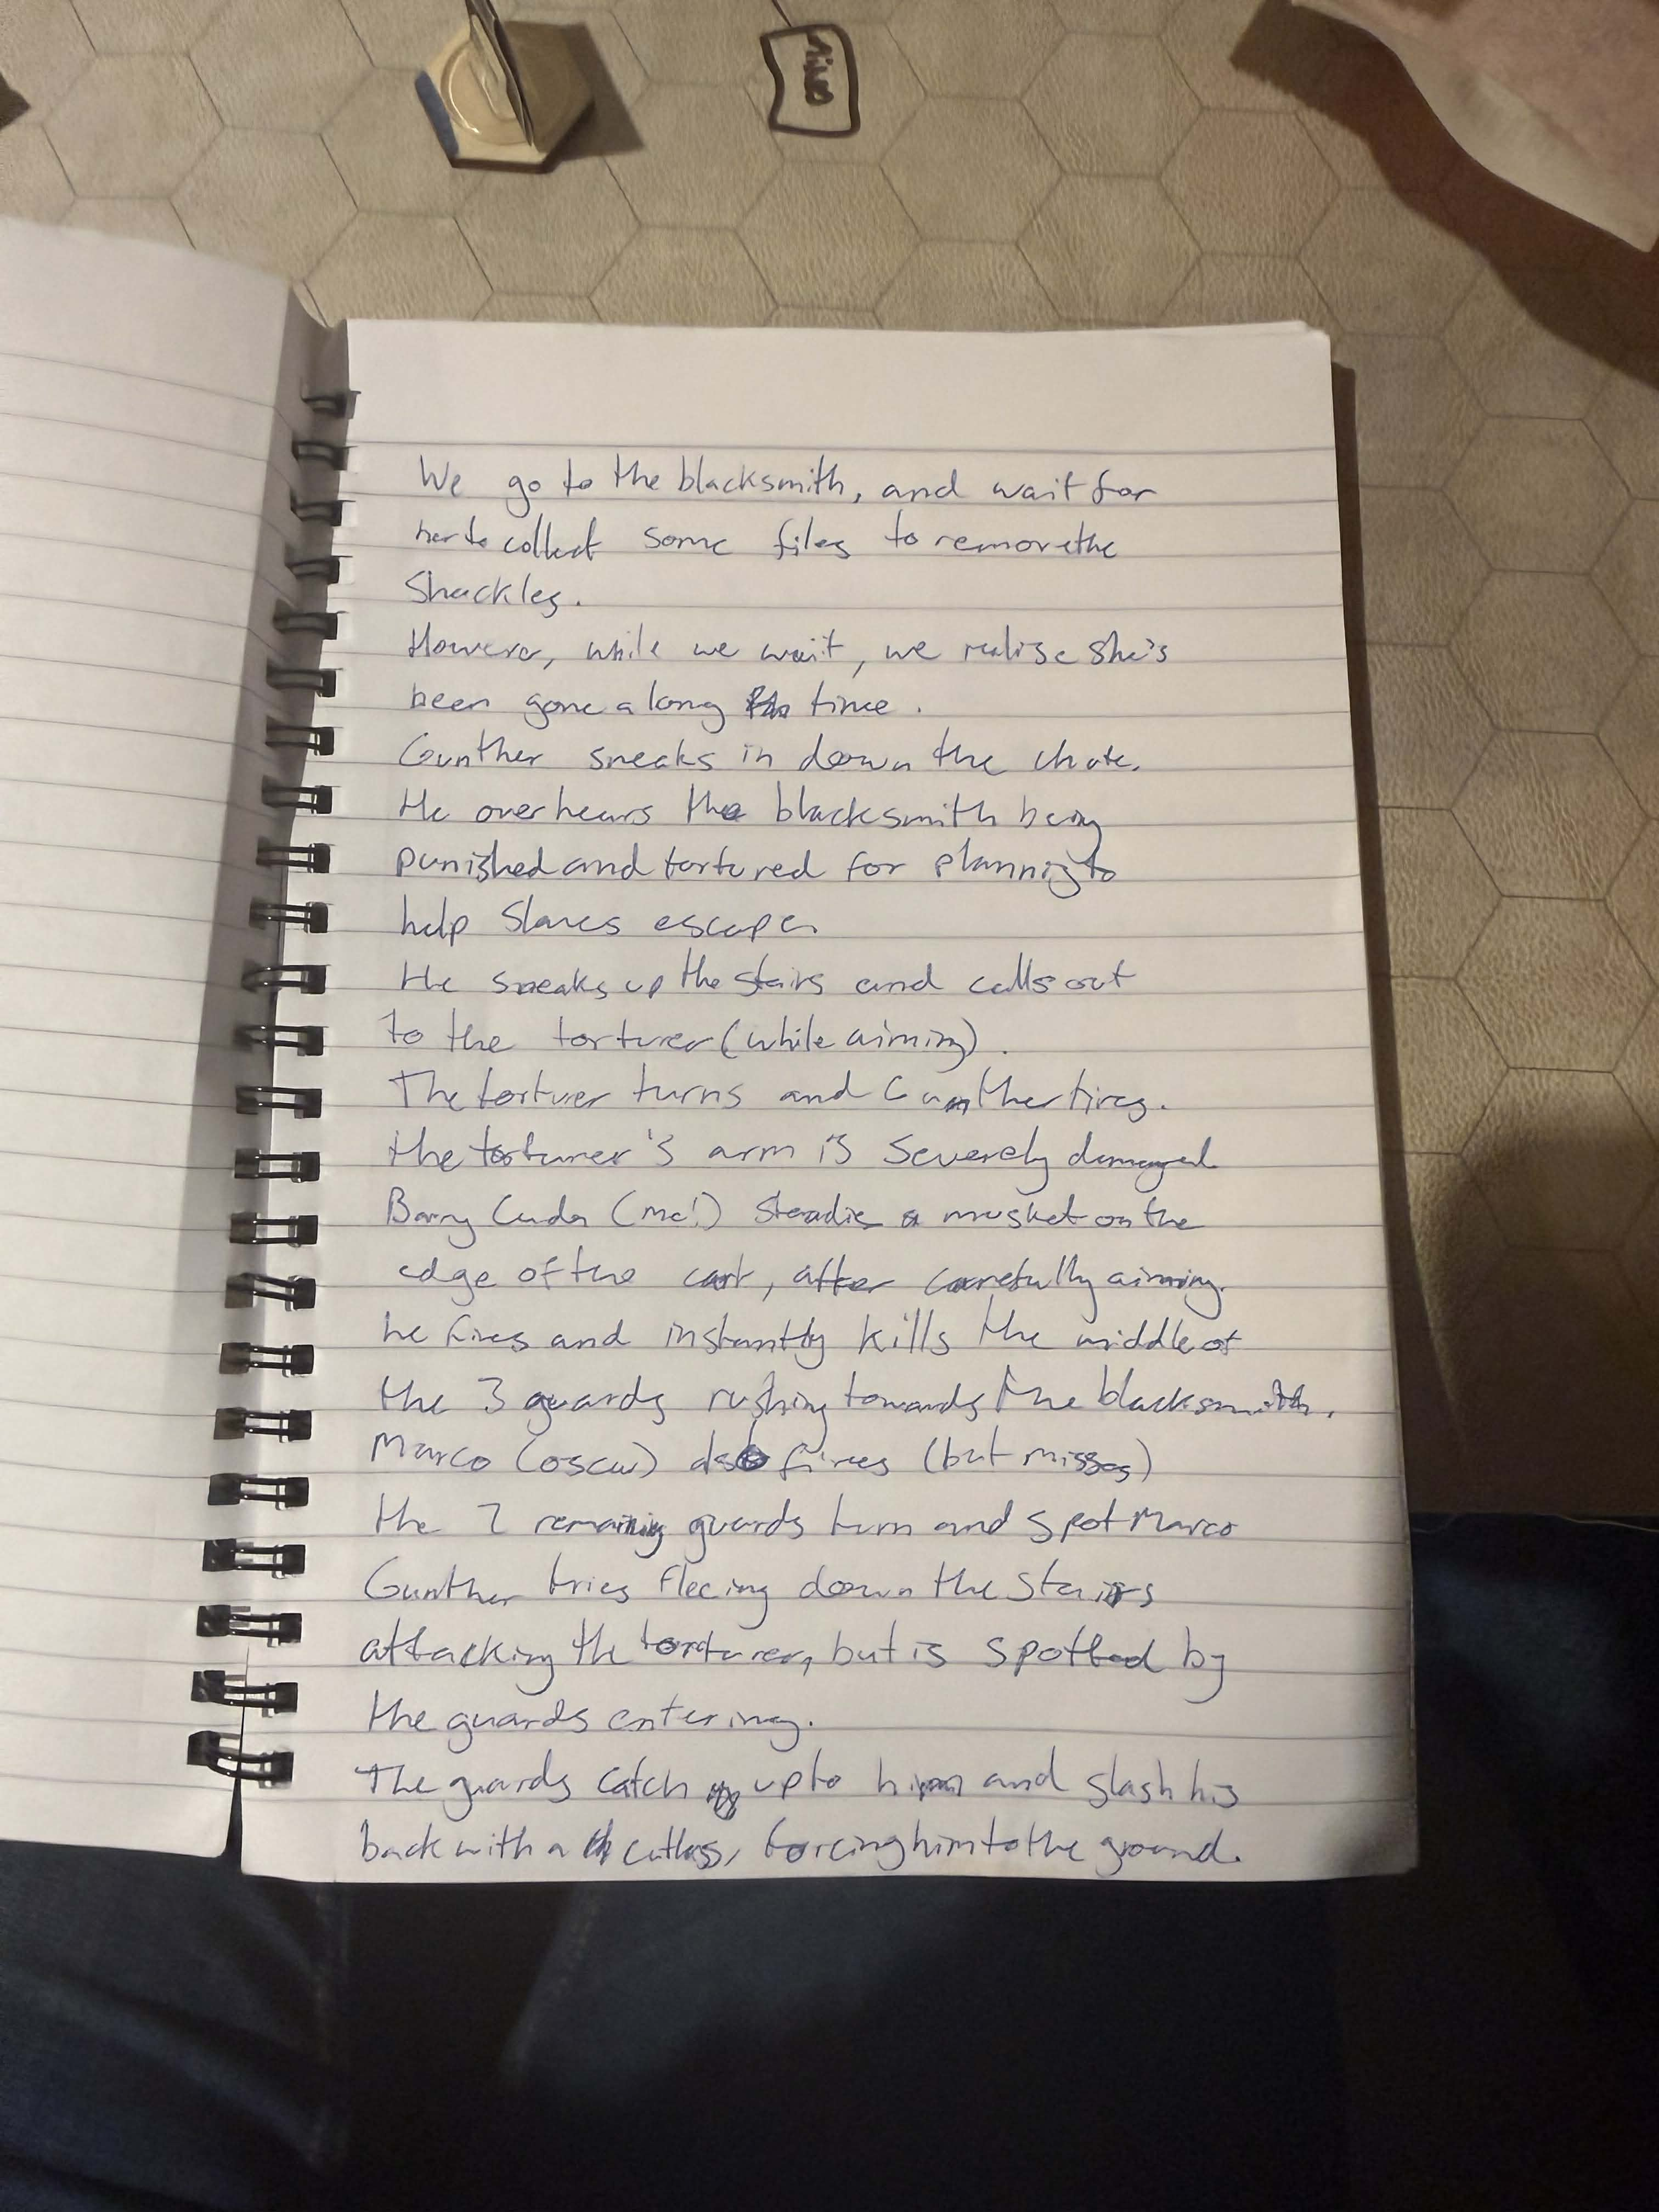 We go to the blacksmith, and wait for
her to collect some files to remove the
Shackles.
However, while we wait, we realise she's
been gone a long time.
Gunther sneaks in down the chute.
He overhears the blacksmith being
punished and tortured for planning to
help Slaves escape.
He sneaks up the stairs and calls out
to the torturer (while aiming).
The torturer turns and Gunther fires.
the torturer's arm is Severely damaged
Barry Cuda (me!) Steadies a musket on the
edge of the cart, after carefully aiming.
he fires and instantly kills the middle of
the 3 guards rushing towards the blacksmith.
Marco (oscar) also fires (but misses)
the 2 remaining guards turn and spot Marco
Gunther tries fleeing down the Stairs
attacking the torturer, but is spotted by
the guards entering.
The guards catch up to him and slash his
back with a cutlass, forcing him to the ground.